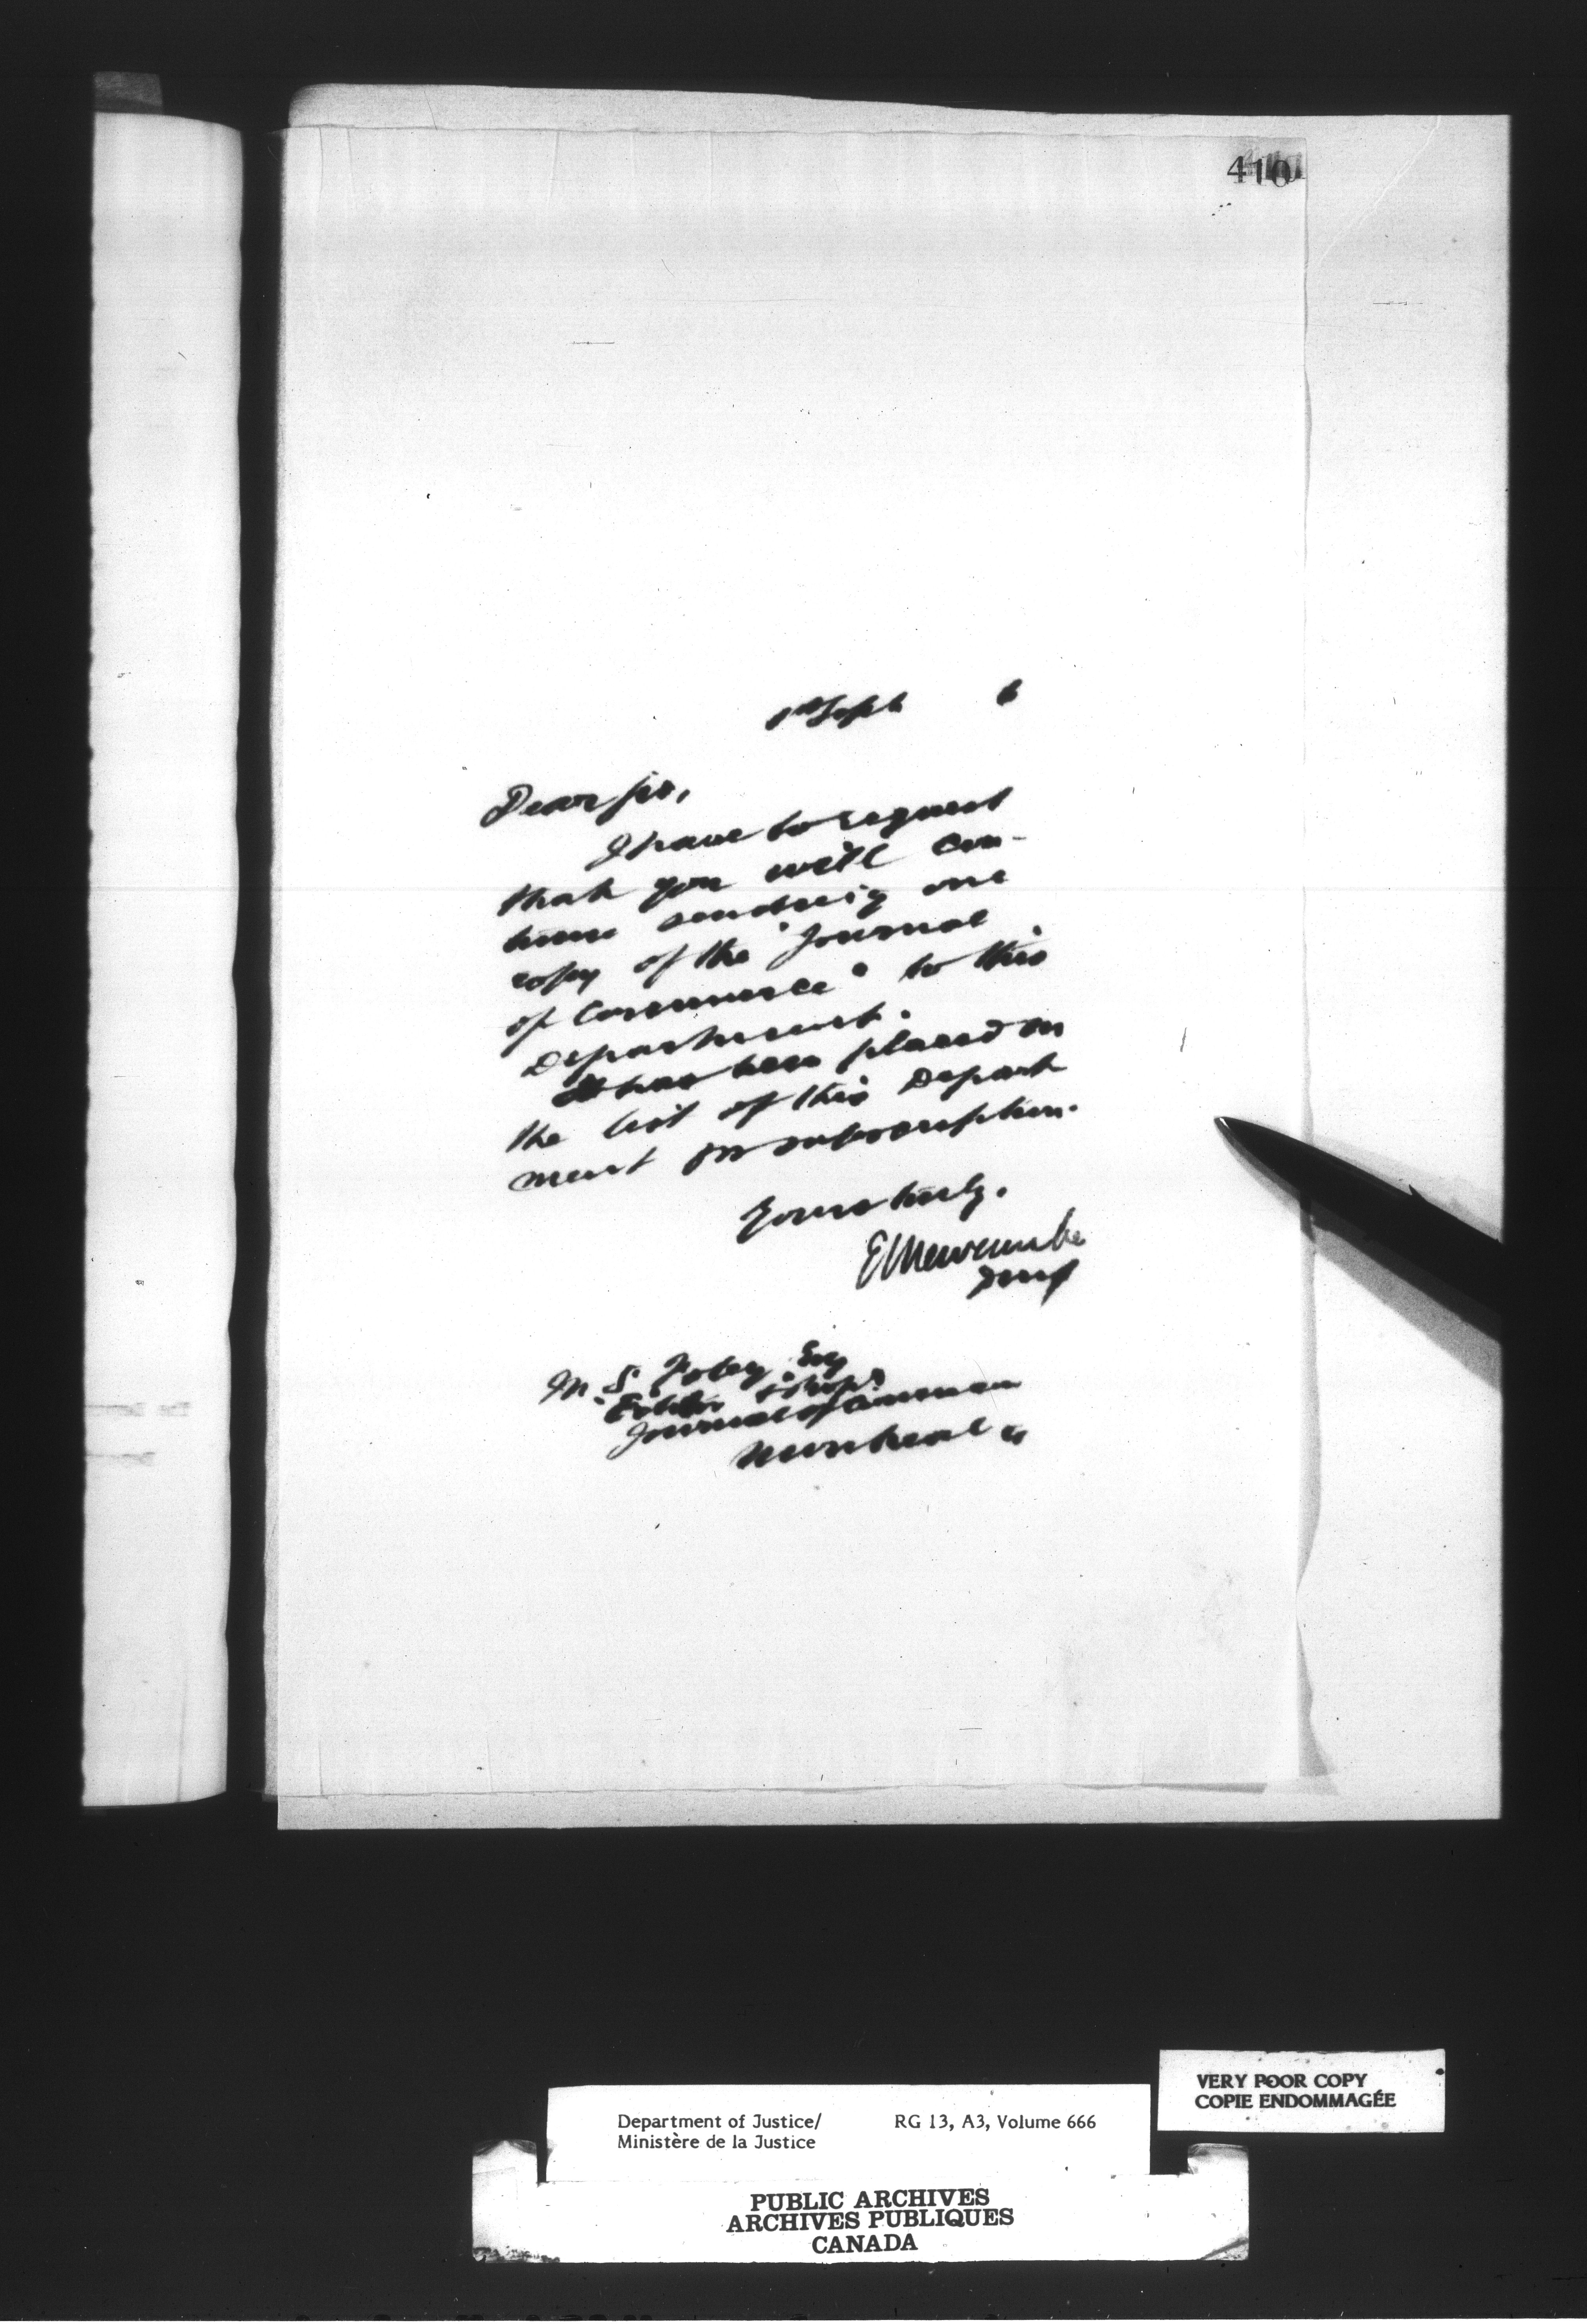 410
1st Sept 6
Dear Sir,
I have to request
that you will con-
tinue sending one
copy of the "Journal
of Commerce" to this
Department.
It has been placed on
the list of this Depart
ment for subscription.
Yours truly,
E L Newcombe
DMJ
M. S. Foley Esq
Editor
Journal of Commerce
Montreal Q
VERY POOR COPY
COPIE ENDOMMAGÉE
Department of Justice/ RG 13, A3, Volume 666
Ministère de la Justice
PUBLIC ARCHIVES
ARCHIVES PUBLIQUES
CANADA